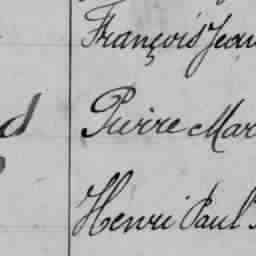 François Jean
d
Pierre Mar
Henri Paul